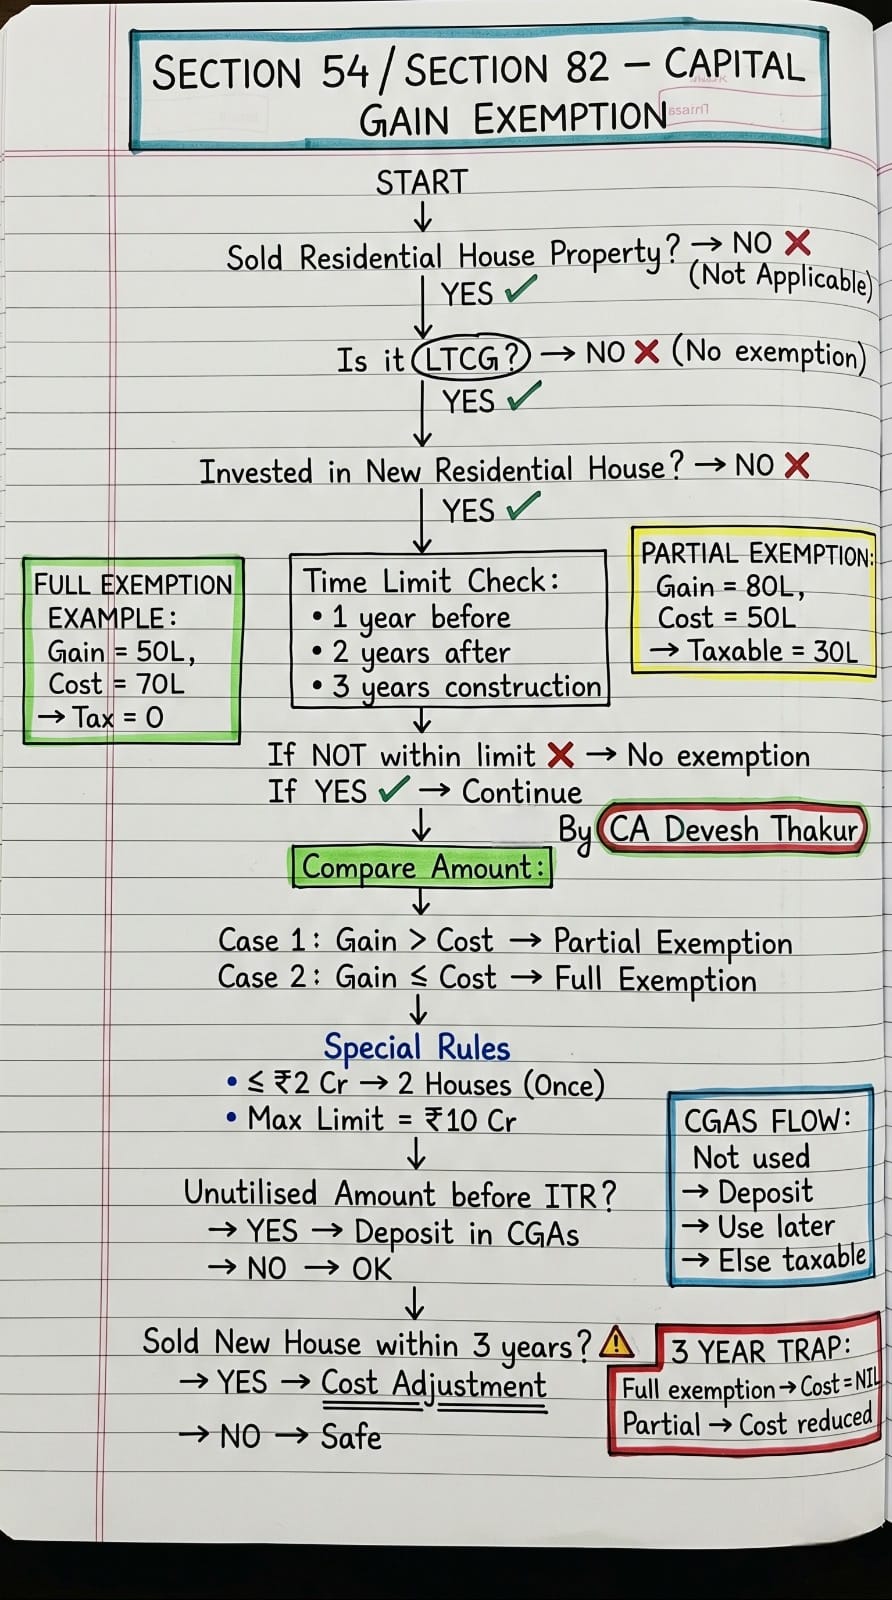 SECTION 54 / SECTION 82 – CAPITAL
GAIN EXEMPTION
START
↓
Sold Residential House Property? → NO ❌
(Not Applicable)
YES ✓
Is it LTCG? → NO ❌ (No exemption)
YES ✓
Invested in New Residential House? → NO ❌
YES ✓
FULL EXEMPTION
EXAMPLE:
Gain = 50L,
Cost = 70L
→ Tax = 0
Time Limit Check:
• 1 year before
• 2 years after
• 3 years construction
PARTIAL EXEMPTION:
Gain = 80L,
Cost = 50L
→ Taxable = 30L
↓
If NOT within limit ❌ → No exemption
If YES ✓ → Continue
↓
By CA Devesh Thakur
Compare Amount:
↓
Case 1: Gain > Cost → Partial Exemption
Case 2: Gain ≤ Cost → Full Exemption
↓
Special Rules
• ≤ ₹2 Cr → 2 Houses (Once)
• Max Limit = ₹10 Cr
↓
Unutilised Amount before ITR?
→ YES → Deposit in CGAs
→ NO → OK
↓
CGAS FLOW:
Not used
→ Deposit
→ Use later
→ Else taxable
Sold New House within 3 years? ⚠
→ YES → Cost Adjustment
→ NO → Safe
3 YEAR TRAP:
Full exemption → Cost = NIL
Partial → Cost reduced